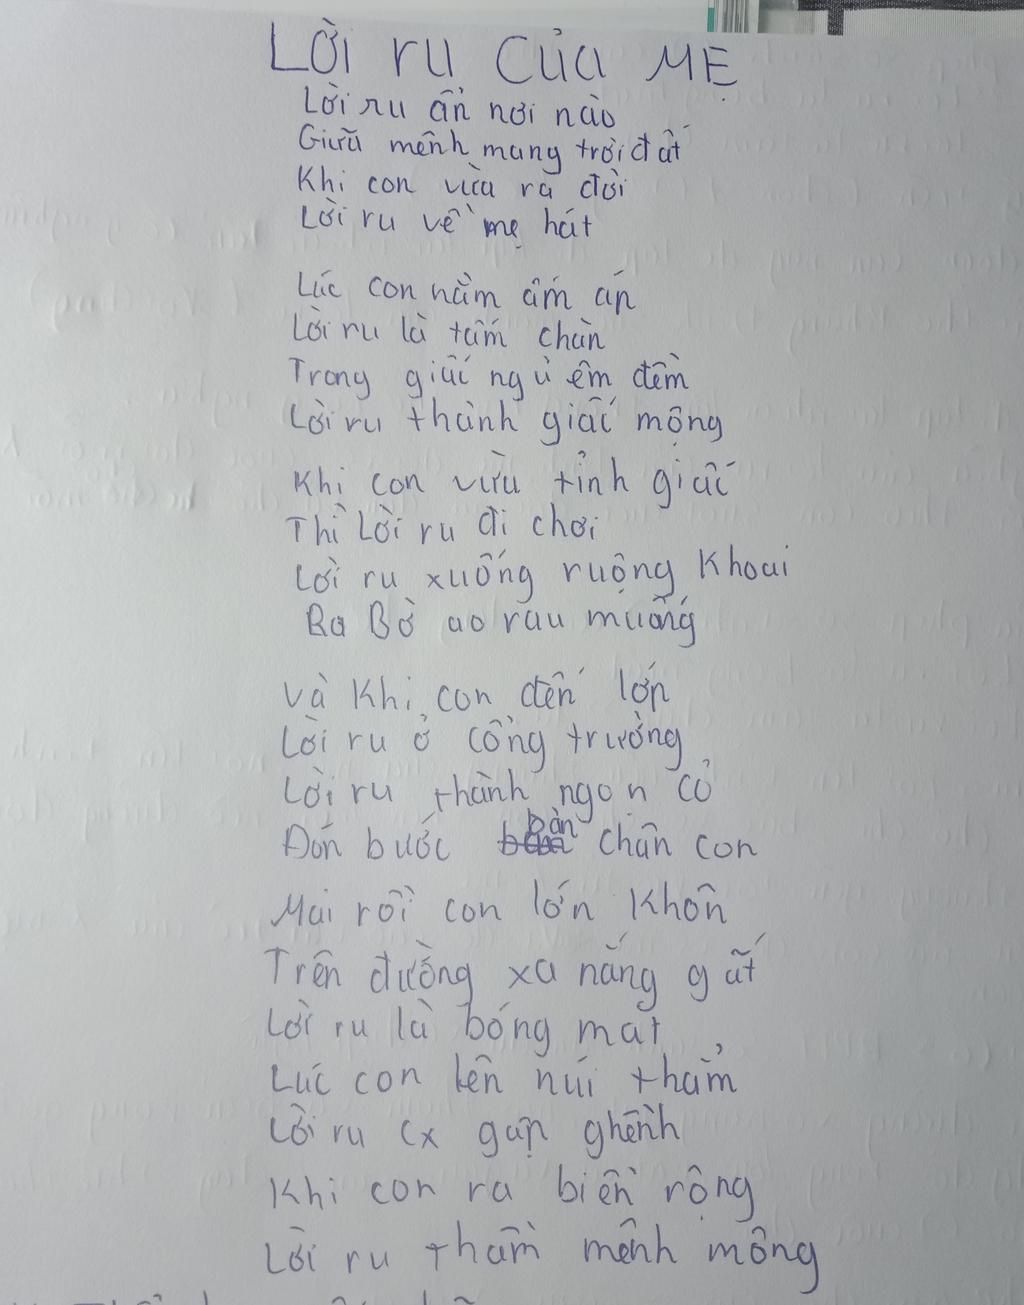 Lời ru của MẸ
Lời ru ẩn nơi nào
Giữa mênh mang trời đất
Khi con vừa ra đời
Lời ru về mẹ hát
Lúc con nằm ấm áp
Lời ru là tấm chăn
Trong giấc ngủ êm đềm
Lời ru thành giấc mộng
Khi con vừa tỉnh giấc
Thì Lời ru đi chơi
Lời ru xuống ruộng Khoai
Ra Bờ ao rau muống
Và Khi con đến lớp
Lời ru ở Cổng trường
Lời ru thành ngọn cỏ
Đón bước bàn chân con
Mai rồi con lớn Khôn
Trên đường xa nắng gắt
Lời ru là bóng mát
Lúc con lên núi thẳm
Lời ru cx gập ghềnh
Khi con ra biển rộng
Lời ru thầm mênh mông